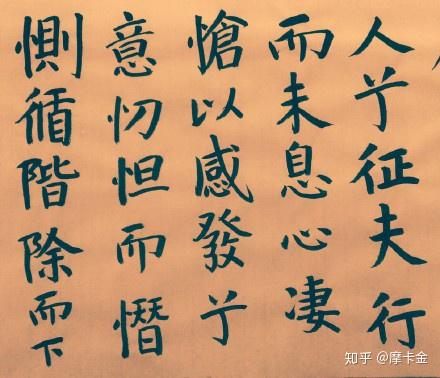 人兮征夫行
而未息心凄
愴以感發兮
意忉怛而憯
惻循階除而下
知乎 @摩卡金